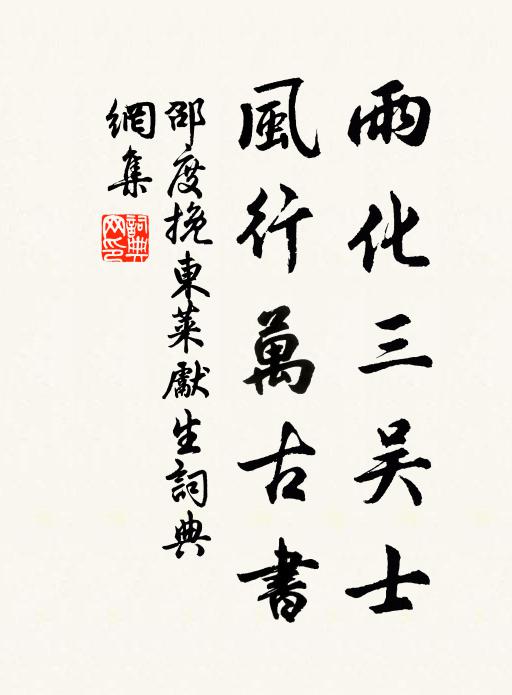 雨化三吴士
風行萬古書
邵度挽東萊獻生詞典
網集
詞典
网印